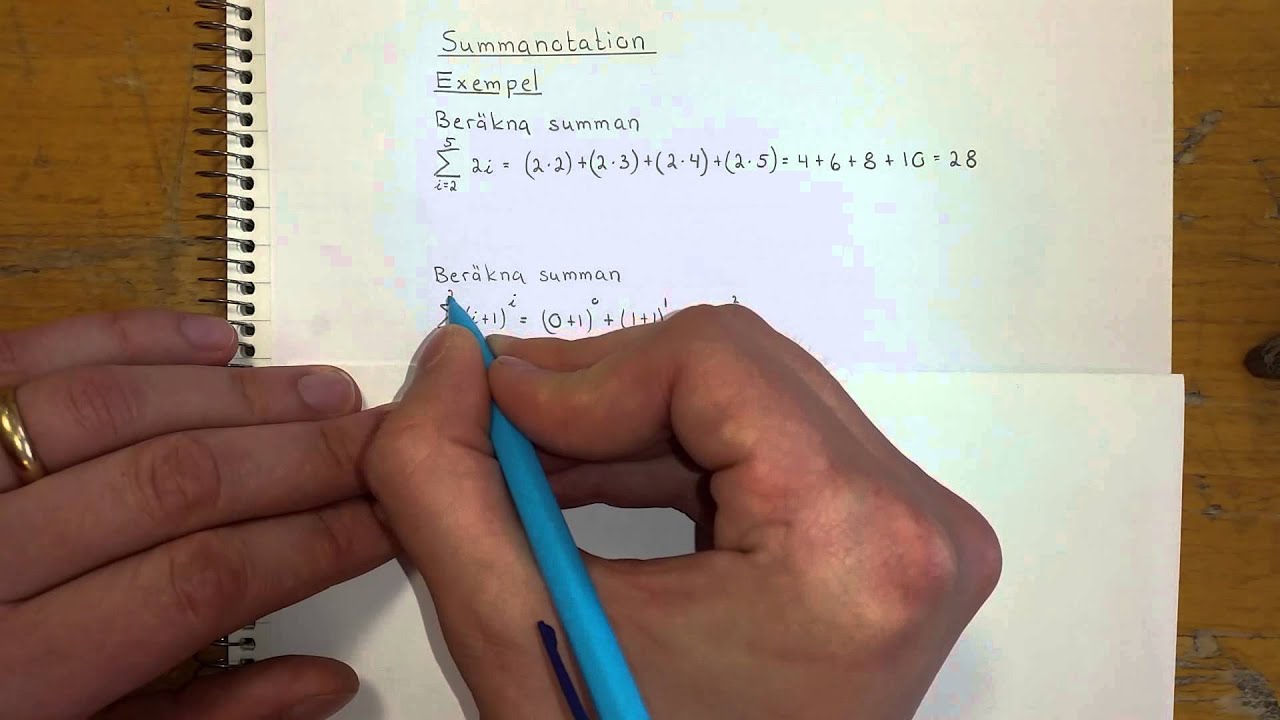 Summanotation
Exempel
Beräkna summan
5
∑ 2i = (2·2)+(2·3)+(2·4)+(2·5) = 4+6+8+10 = 28
i=2
Beräkna summan
(i+1)^i = (0+1)^0 + (1+1)^1 2